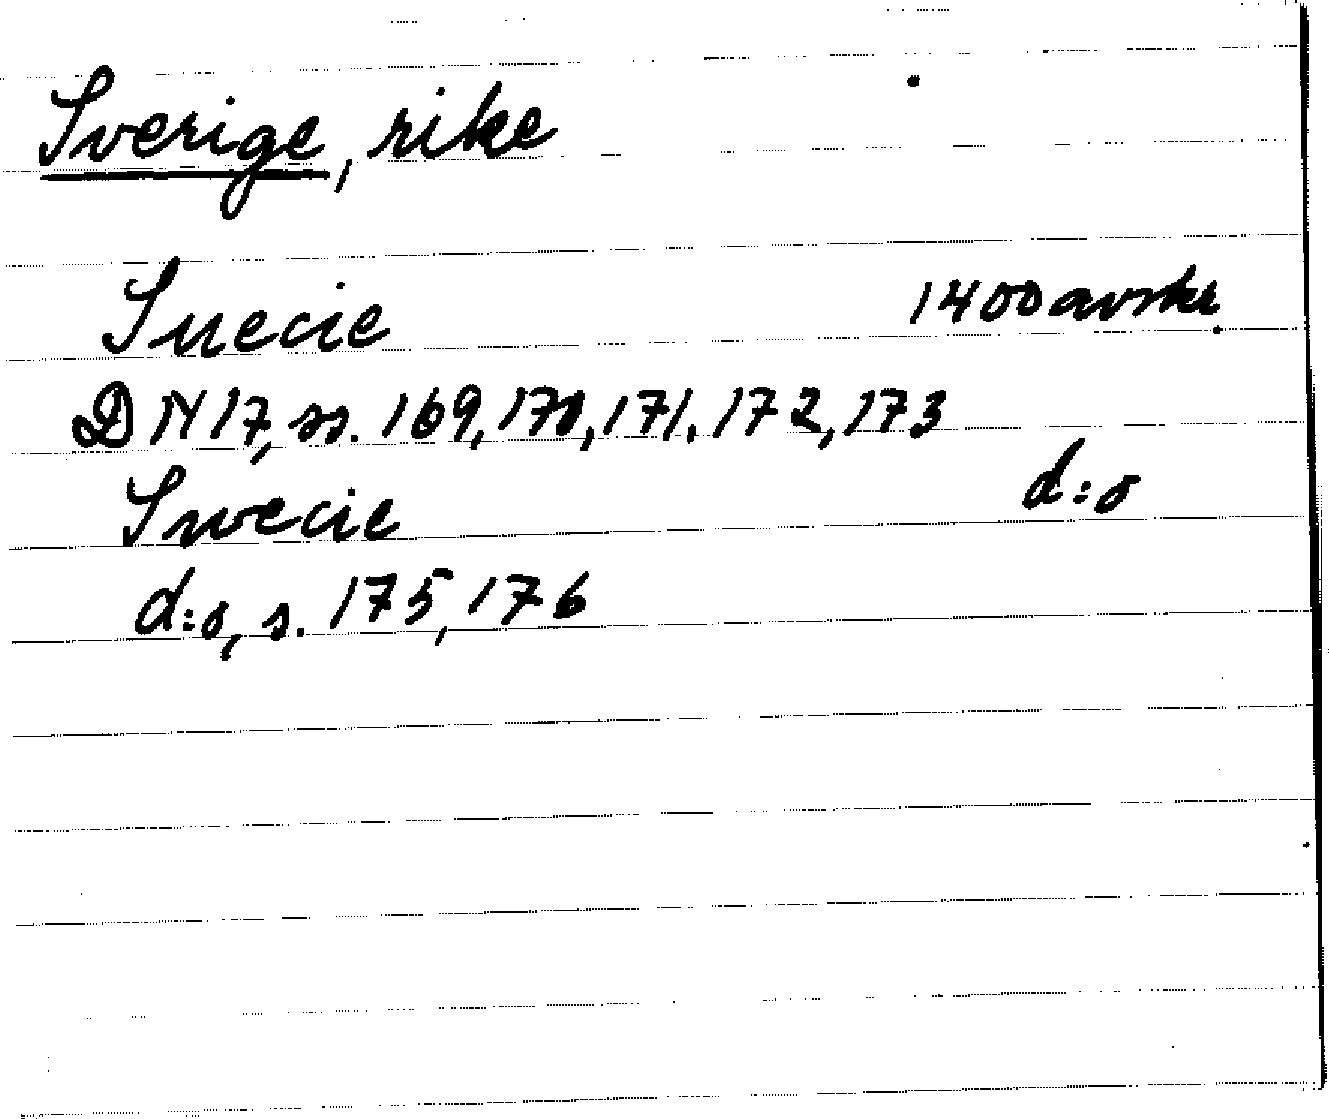 Sverige, rike
Suecie 1400 avskr.
DN 17, ss. 169, 170, 171, 172, 173
Swecie d:o
d:o, s. 175, 176